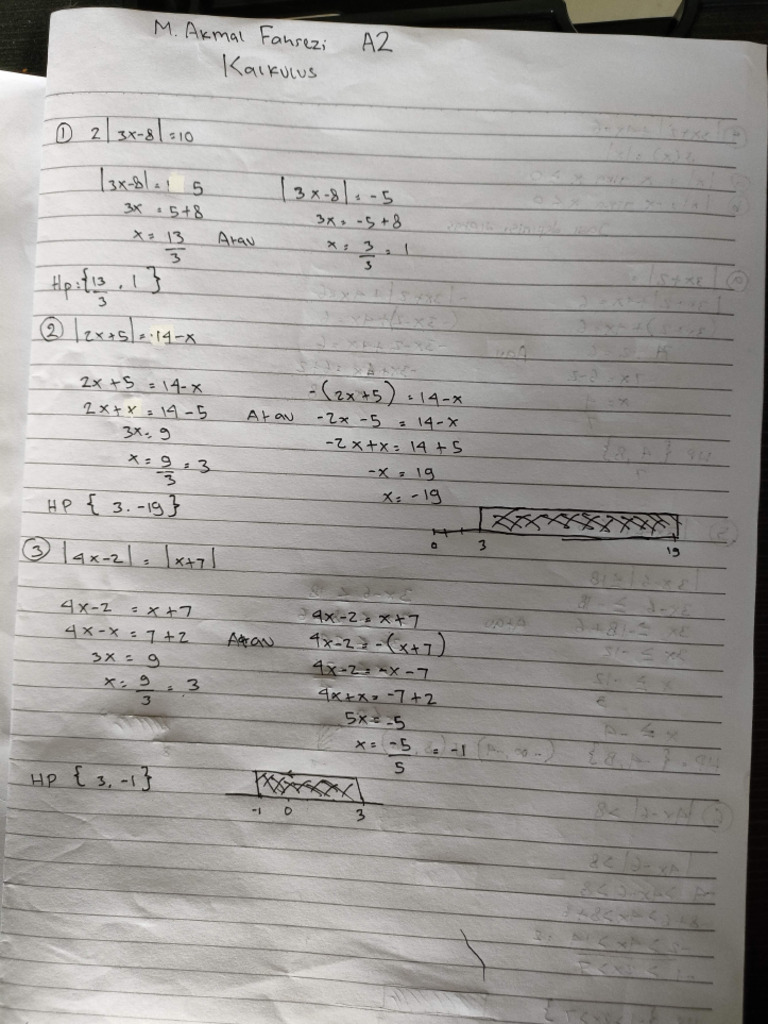 M. Akmal Fahrezi A2
Kalkulus
① 2|3x-8| = 10
|3x-8| = 5 |3x-8| = -5
3x = 5+8 3x = -5+8
x = 13/3 Atau x = 3/3 = 1
Hp: {13/3, 1}
② |2x+5| = 14-x
2x+5 = 14-x -(2x+5) = 14-x
2x+x = 14-5 Atau -2x-5 = 14-x
3x = 9 -2x+x = 14+5
x = 9/3 = 3 -x = 19
x = -19
HP {3. -19}
0 3 19
③ |4x-2| = |x+7|
4x-2 = x+7 4x-2 = x+7
4x-x = 7+2 Atau 4x-2 = -(x+7)
3x = 9 4x-2 = -x-7
x = 9/3 = 3 4x+x = -7+2
5x = -5
x = -5/5 = -1
HP {3, -1}
-1 0 3